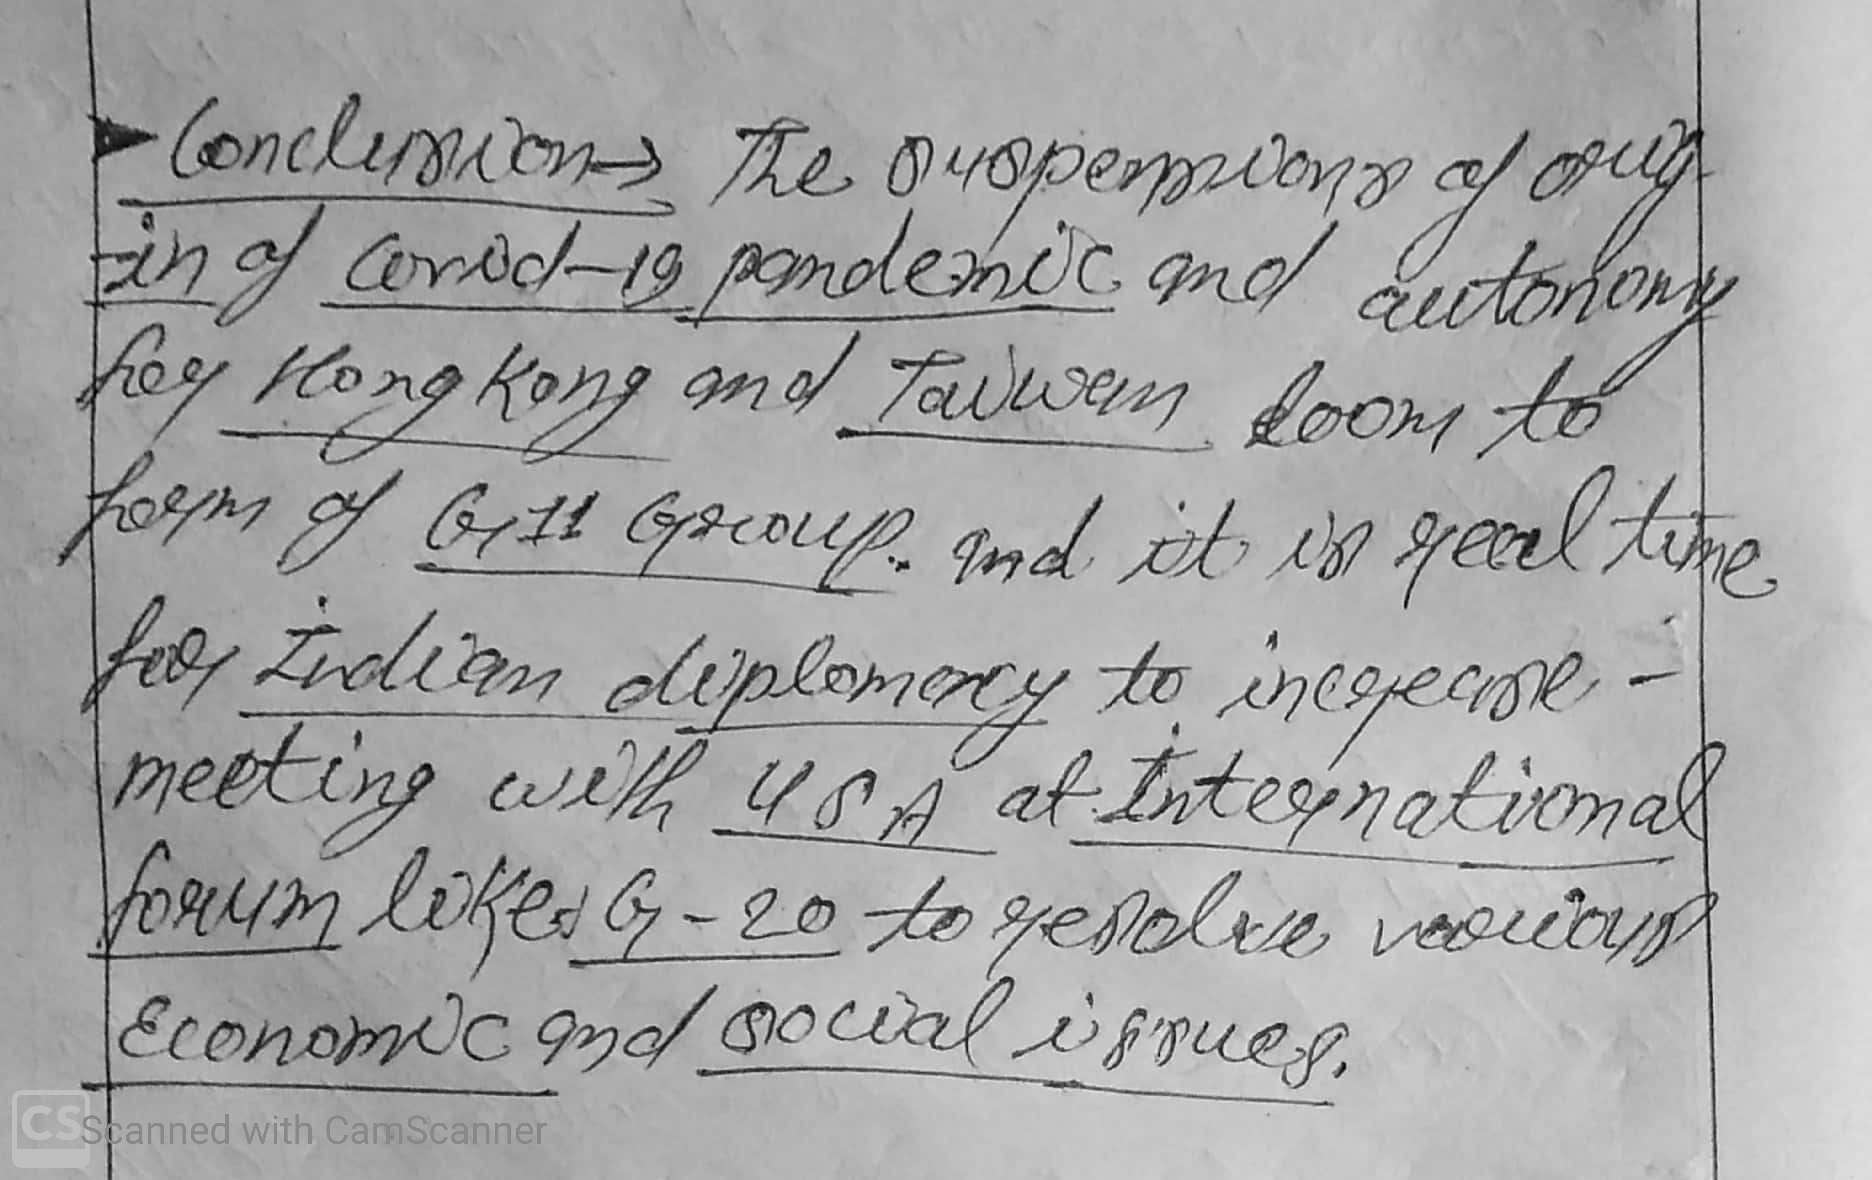 ▶ Conclusion → The suspensions of orig-
-in of Covid-19 pandemic and autonomy
for Hong Kong and Taiwan loom to
form of G11 Group. and it is real time
for Indian diplomacy to increase -
meeting with USA at International
forum like G-20 to resolve various
Economic and social issues.
CS Scanned with CamScanner